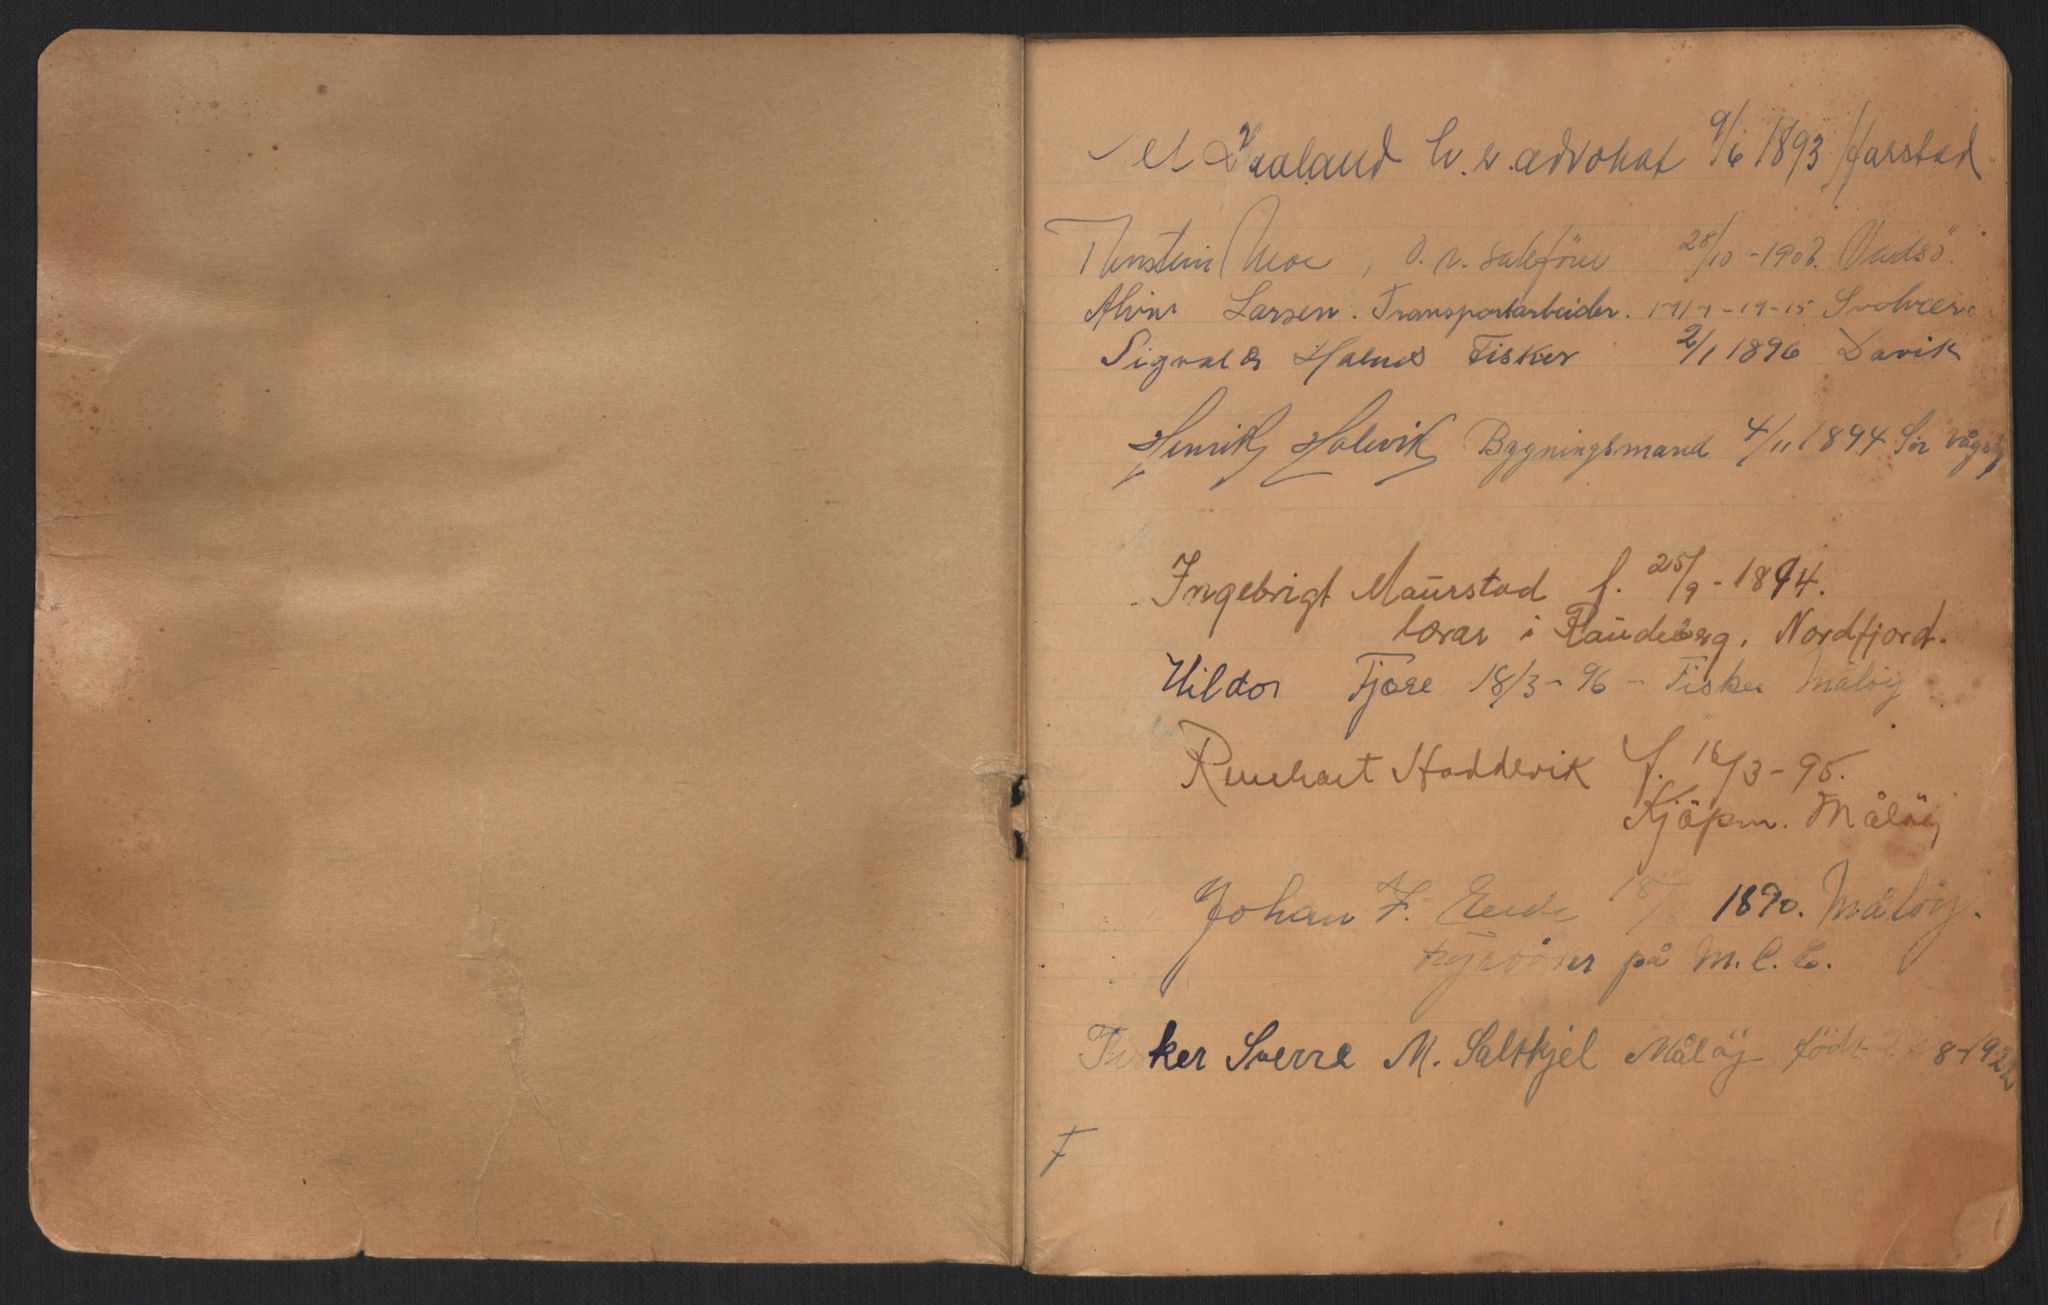 h.r. advokat 9/6 1893 Harstad
Moe, o.r. sakförer 28/10 - 1906. Vadsö.
Alvin Larsen. Transportarbeider. 19-15 Svolvær.
Sigvald Fisker 2/1 1896 Davik
Henrik Halvik Bygningsmand 4/11 1894 Sör Vågsöy
Ingebrigt Maurstad f. 25/9 - 1894.
lærar i Raudeberg, Nordfjord.
Hildor Tjore 18/3 - 96 - Fisker Målöy
Reinhart Hoddevik f. 16/3 - 95.
Kjöpm. Målöy
Johan F. Eide 1890. Målöy.
fyrböter på M.C.E.
Fisker Sverre M. Saltkjel Målöy födt 8-1922
F